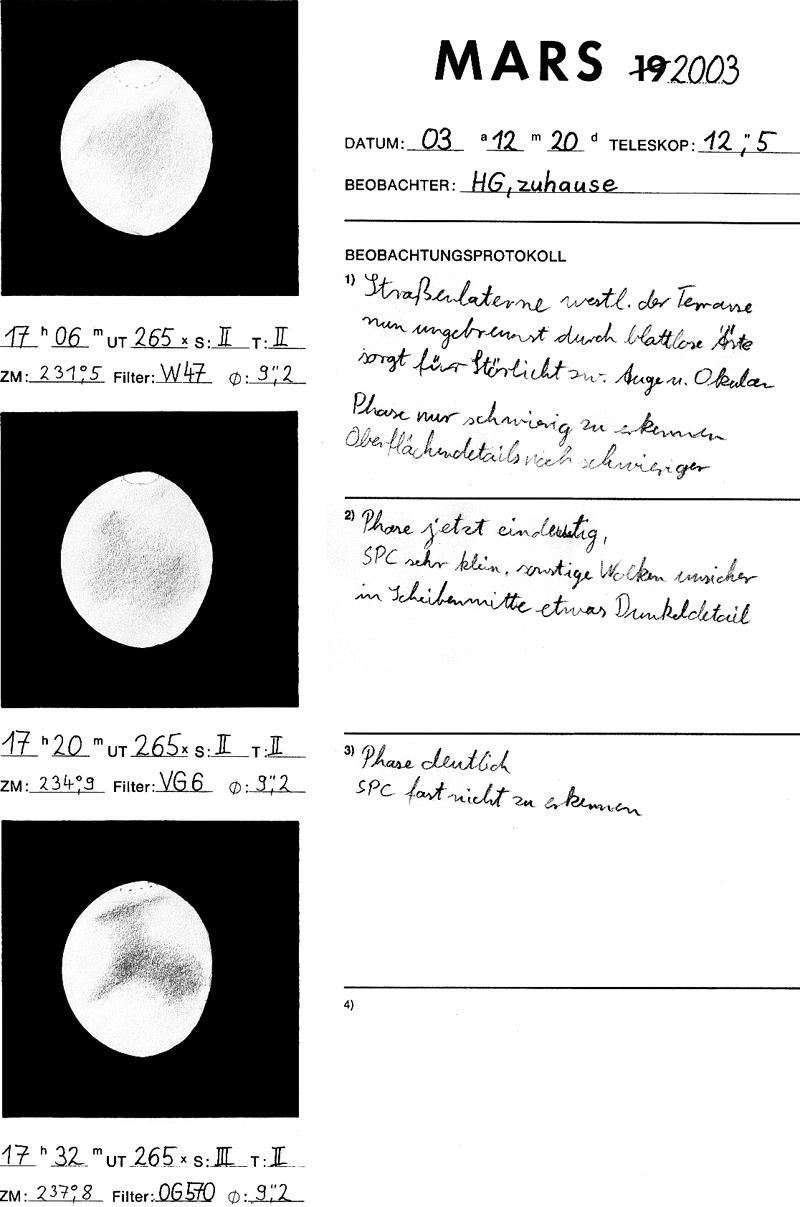 MARS 19 2003
DATUM: 03 a 12 m 20 d TELESKOP: 12",5
BEOBACHTER: HG, zuhause
BEOBACHTUNGSPROTOKOLL
1) Straßenlaterne westl. der Terrasse
nun ungebremst durch blattlose Äste
sorgt für Störlicht zw. Auge u. Okular
Phase nur schwierig zu erkennen
Oberflächendetails noch schwieriger
17 h 06 m UT 265 x S: II T: II
ZM: 231°,5 Filter: W47 Ø: 9",2
2) Phase jetzt eindeutig,
SPC sehr klein, sonstige Wolken unsicher
in Scheibenmitte etwas Dunkeldetail
17 h 20 m UT 265 x S: II T: II
ZM: 234°,9 Filter: VG6 Ø: 9",2
3) Phase deutlich
SPC fast nicht zu erkennen
4)
17 h 32 m UT 265 x S: III T: II
ZM: 237°,8 Filter: OG570 Ø: 9",2